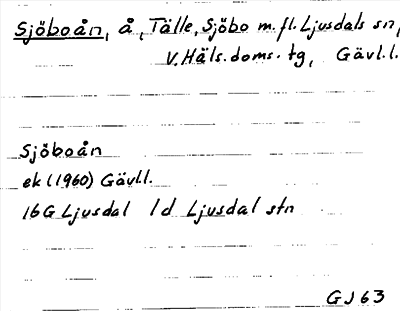 Sjöboån, å, Tälle, Sjöbo m.fl. Ljusdals sn,
V. Häls. doms. tg, Gävl.l.
Sjöboån
ek (1960) Gävll.
16G Ljusdal 1d Ljusdal stn
GJ63